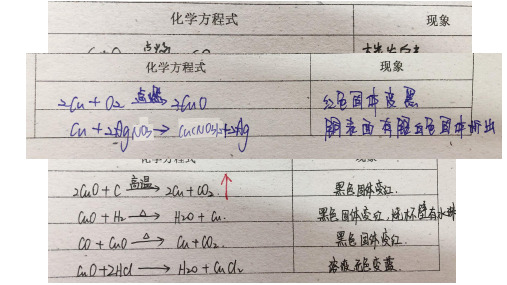 化学方程式 现象
点燃
化学方程式 现象
2Cu + O2 点燃 2CuO 红色固体变黑
Cu + 2AgNO3 → Cu(NO3)2+2Ag 铜表面有银白色固体析出
化学方程式 现象
2CuO + C 高温 2Cu + CO2 黑色固体变红.
CuO + H2 △ H2O + Cu. 黑色固体变红,烧杯壁有水珠
CO + CuO △ Cu + CO2. 黑色固体变红.
CuO+2HCl → H2O + CuCl2 溶液无色变蓝.